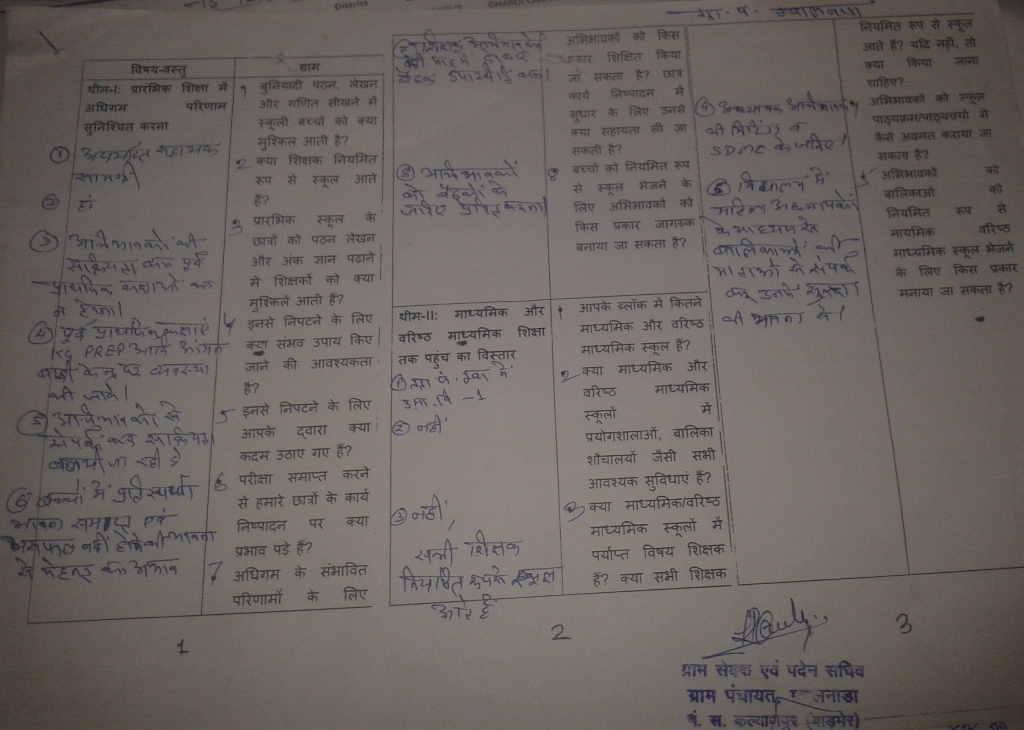 District
ग्रा. पं.
विषय-वस्तु
ग्राम
थीम-I: प्रारंभिक शिक्षा में
अधिगम परिणाम
सुनिश्चित करना
① अपर्याप्त सहायक
सामग्री
② हां
③ अभिभावकों की
सक्रियता कम पूर्व
प्राथमिक कक्षाओं का
न होना।
④ पूर्व प्राथमिक कक्षाएं
KG PREP आदि आंगन
बाड़ी केन्द्र पर व्यवस्था
की जावे।
⑤ अभिभावकों से
संपर्क कर सक्रियता
बढ़ायी जा रही है
⑥ बच्चों में प्रतिस्पर्धा
भावना समाप्त एवं
असफल नहीं होने की भावना
से मेहनत का अभाव
1 बुनियादी पठन, लेखन
और गणित सीखने में
स्कूली बच्चों को क्या
मुश्किल आती है?
2 क्या शिक्षक नियमित
रूप से स्कूल आते
हैं?
3 प्रारंभिक स्कूल के
छात्रों को पठन लेखन
और अंक ज्ञान पढ़ाने
में शिक्षकों को क्या
मुश्किलें आती हैं?
4 इनसे निपटने के लिए
क्या संभव उपाय किए
जाने की आवश्यकता
है?
5 इनसे निपटने के लिए
आपके द्वारा क्या
कदम उठाए गए हैं?
6 परीक्षा समाप्त करने
से हमारे छात्रों के कार्य
निष्पादन पर क्या
प्रभाव पड़े हैं?
7 अधिगम के संभावित
परिणामों के लिए
1
⑧ अभिभावकों
को बैठकों के
जरिए प्रेरित करना।
अभिभावकों को किस
प्रकार शिक्षित किया
जा सकता है? छात्र
कार्य निष्पादन में
सुधार के लिए उनसे
क्या सहायता ली जा
सकती है?
8 बच्चों को नियमित रूप
से स्कूल भेजने के
लिए अभिभावकों को
किस प्रकार जागरूक
बनाया जा सकता है?
थीम-II: माध्यमिक और
वरिष्ठ माध्यमिक शिक्षा
तक पहुंच का विस्तार
① ग्रा. पं. में
उ.मा.वि -1
② नहीं
③ नहीं,
सभी शिक्षक
नियमित रूप से स्कूल
आते हैं
1 आपके ब्लॉक में कितने
माध्यमिक और वरिष्ठ
माध्यमिक स्कूल हैं?
2 क्या माध्यमिक और
वरिष्ठ माध्यमिक
स्कूलों में
प्रयोगशालाओं, बालिका
शौचालयों जैसी सभी
आवश्यक सुविधाएं हैं?
3 क्या माध्यमिक/वरिष्ठ
माध्यमिक स्कूलों में
पर्याप्त विषय शिक्षक
हैं? क्या सभी शिक्षक
2
④ अध्यापक अभिभावक
की मिटिंग व
SDMC के जरिए।
⑤ विद्यालय में
महिला अध्यापकों
के माध्यम से
बालिकाओं की
माताओं से संपर्क
कर उनमें सुरक्षा
की भावना दें।
नियमित रूप से स्कूल
आते हैं? यदि नहीं, तो
क्या किया जाना
चाहिए?
4 अभिभावकों को स्कूल
पाठ्यक्रम/पाठ्यचर्या से
कैसे अवगत कराया जा
सकता है?
अभिभावकों को
बालिकाओं को
नियमित रूप से
माध्यमिक वरिष्ठ
माध्यमिक स्कूल भेजने
के लिए किस प्रकार
मनाया जा सकता है?
3
ग्राम सेवक एवं पदेन सचिव
ग्राम पंचायत,
पं. स. कल्याणपुर (बाड़मेर)